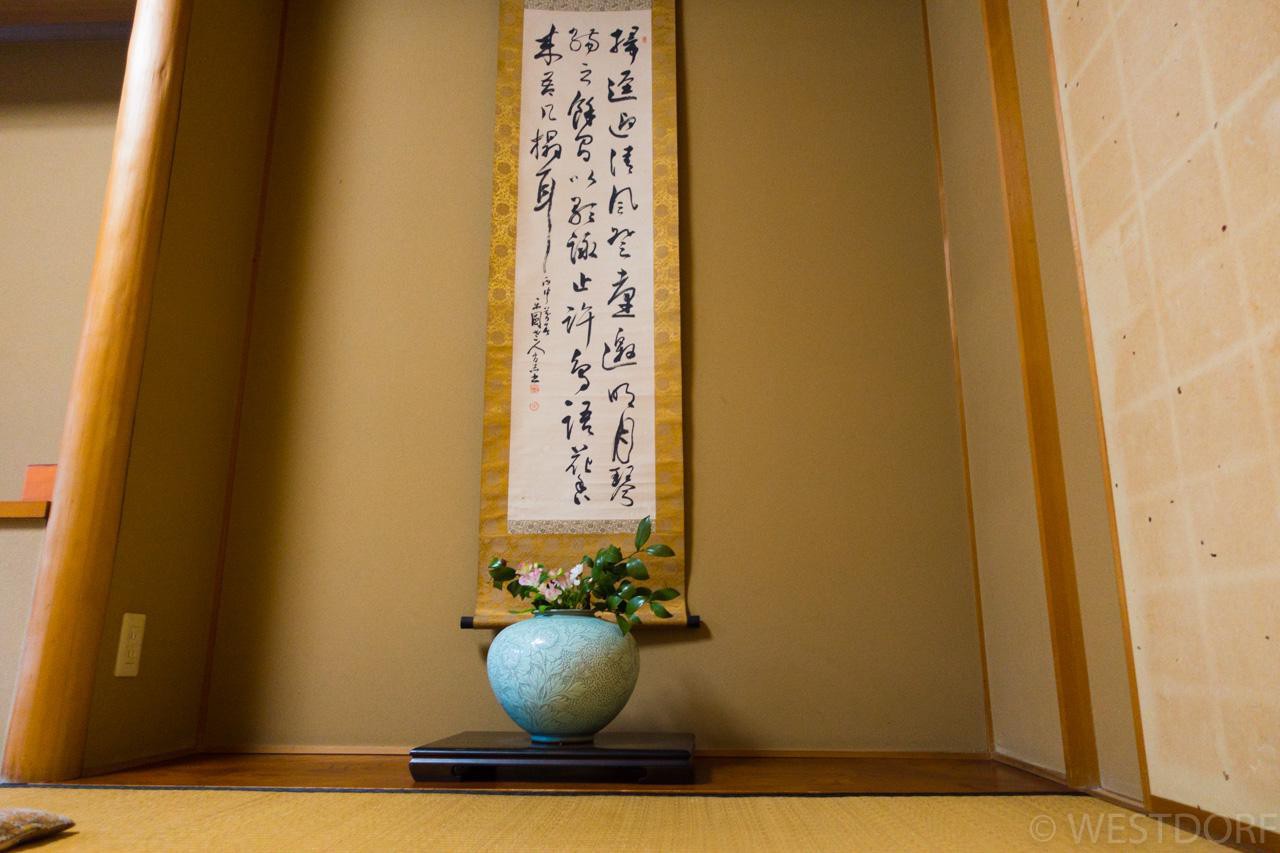 掃逕迎清風登臺邀明月琴
觴之餘間以歌詠止許鳥語花香
来吾几榻耳
© WESTDORF